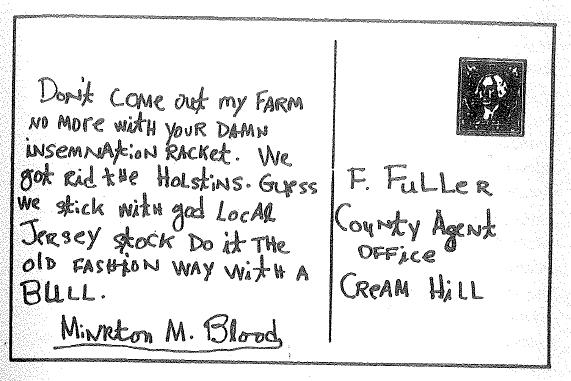 Don't come out my FARM
NO MORE with YOUR DAMN
INSEMNATION RACKET. We
got Rid the Holstins. Guess
we stick with god Local
Jersey stock Do it THE
OLD FASHION WAY WITH A
BULL.
Minrton M. Blood
F. FULLER
County Agent
OFFice
CReAM HiLL